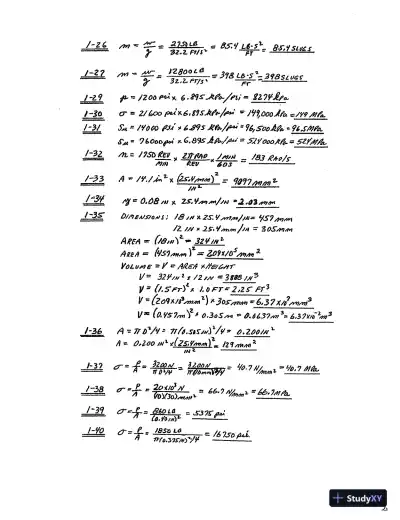 1-26 m = w/g = 2750 LB / 32.2 FT/S² = 85.4 LB·S²/FT = 85.4 SLUGS
1-27 m = w/g = 12800 LB / 32.2 FT/S² = 398 LB·S²/FT = 398 SLUGS
1-29 p = 1200 psi × 6.895 kPa/psi = 8274 kPa
1-30 σ = 21600 psi × 6.895 kPa/psi = 149,000 kPa = 149 MPa
1-31 Sₙ = 14000 psi × 6.895 kPa/psi = 96,500 kPa = 96.5 MPa
Sᵤ = 76000 psi × 6.895 kPa/psi = 524000 kPa = 524 MPa
1-32 n = 1750 REV/MIN × 2π RAD/REV × 1 MIN/60 S = 183 RAD/S
1-33 A = 14.1 in² × (25.4 mm)²/IN² = 9097 mm²
1-34 y = 0.08 IN × 25.4 mm/IN = 2.03 mm
1-35 DIMENSIONS: 18 IN × 25.4 mm/IN = 457 mm
12 IN × 25.4 mm/IN = 305 mm
AREA = (18 IN)² = 324 IN²
AREA = (457 mm)² = 2.09×10⁵ mm²
VOLUME = V = AREA × HEIGHT
V = 324 IN² × 12 IN = 3888 IN³
V = (1.5 FT)² × 1.0 FT = 2.25 FT³
V = (2.09×10⁵ mm²) × 305 mm = 6.37×10⁷ mm³
V = (0.457 m)² × 0.305 m = 0.0637 m³ = 6.37×10⁻² m³
1-36 A = π D²/4 = π(0.505 IN)²/4 = 0.200 IN²
A = 0.200 IN² × (25.4 mm)²/IN² = 129 mm²
1-37 σ = P/A = 3200 N / π D²/4 = 3200 N / π(10 mm)²/4 = 40.7 N/mm² = 40.7 MPa
1-38 σ = P/A = 20×10³ N / (10)(30) mm² = 66.7 N/mm² = 66.7 MPa
1-39 σ = P/A = 860 LB / (0.40 IN)² = 5375 psi
1-40 σ = P/A = 1850 LB / π(0.375 IN)²/4 = 16750 psi
+ StudyXY